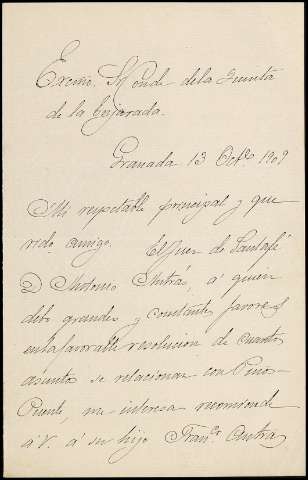 Excmo. Sr. Conde de la Quinta
de la Enjarada.
Granada 13 Octe. 1909
Mi respetable principal y que
rido amigo. El Juez de Santafé
D. Antonio Mitrás, á quién
debo grandes y constantes favores
en la favorable resolucion de cuantos
asuntos se relacionan con Pinos-
Puente, me interesa recomiende
á V. á su hijo Franco.